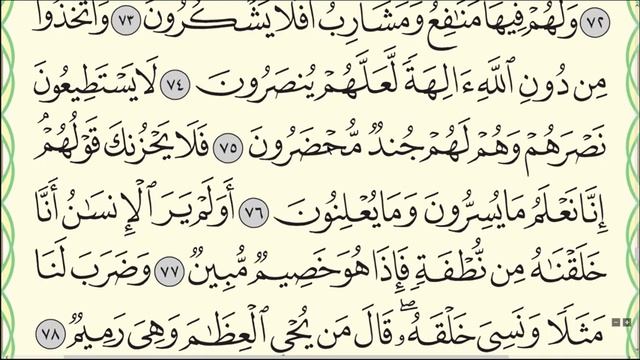 ٧٢ وَلَهُمْ فِيهَا مَنَٰفِعُ وَمَشَارِبُ أَفَلَا يَشْكُرُونَ ٧٣ وَٱتَّخَذُوا۟
مِن دُونِ ٱللَّهِ ءَالِهَةً لَّعَلَّهُمْ يُنصَرُونَ ٧٤ لَا يَسْتَطِيعُونَ
نَصْرَهُمْ وَهُمْ لَهُمْ جُندٌ مُّحْضَرُونَ ٧٥ فَلَا يَحْزُنكَ قَوْلُهُمْ
إِنَّا نَعْلَمُ مَا يُسِرُّونَ وَمَا يُعْلِنُونَ ٧٦ أَوَلَمْ يَرَ ٱلْإِنسَٰنُ أَنَّا
خَلَقْنَٰهُ مِن نُّطْفَةٍ فَإِذَا هُوَ خَصِيمٌ مُّبِينٌ ٧٧ وَضَرَبَ لَنَا
مَثَلًا وَنَسِىَ خَلْقَهُۥ ۖ قَالَ مَن يُحْىِ ٱلْعِظَٰمَ وَهِىَ رَمِيمٌ ٧٨